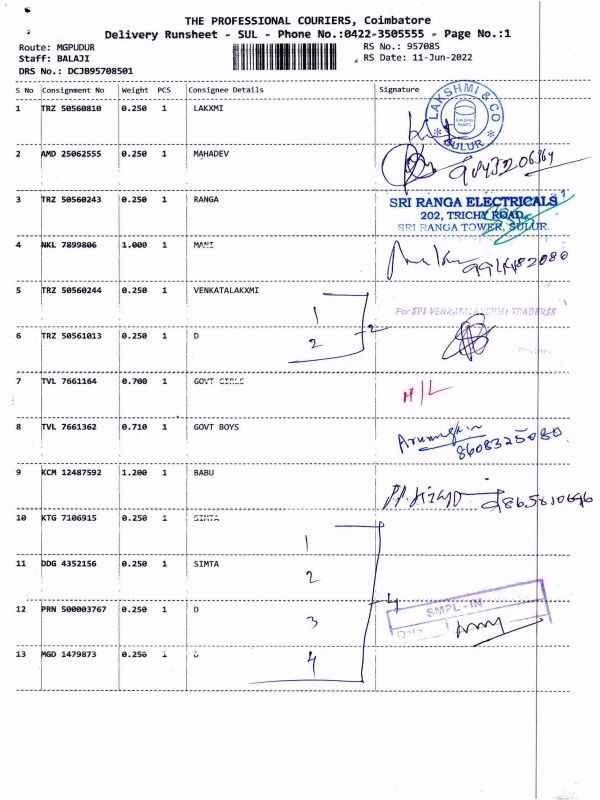 THE PROFESSIONAL COURIERS, Coimbatore
Delivery Runsheet - SUL - Phone No.:0422-3505555 - Page No.:1
Route: MGPUDUR
RS No.: 957085
Staff: BALAJI
RS Date: 11-Jun-2022
DRS No.: DCJB95708501
S No Consignment No Weight PCS Consignee Details Signature
1 TRZ 50560810 0.250 1 LAKXMI
LAKSHMI & CO
SULUR
2 AMD 25062555 0.250 1 MAHADEV
3 TRZ 50560243 0.250 1 RANGA
SRI RANGA ELECTRICALS
202, TRICHY ROAD,
SRI RANGA TOWER, SULUR.
4 NKL 7899806 1.000 1 MANI
5 TRZ 50560244 0.250 1 VENKATALAKXMI
1
For SRI VENKATALAKSHMI TRADERSS
2
6 TRZ 50561013 0.250 1 D
2
7 TVL 7661164 0.700 1 GOVT GIRLS
H/L
8 TVL 7661362 0.710 1 GOVT BOYS
8608325080
9 KCM 12487592 1.200 1 BABU
10 KTG 7106915 0.250 1 SIMTA
1
11 DDG 4352156 0.250 1 SIMTA
2
4
12 PRN 500003767 0.250 1 D
3
SMPL-IN
Date
13 MGD 1479873 0.250 1 D
4